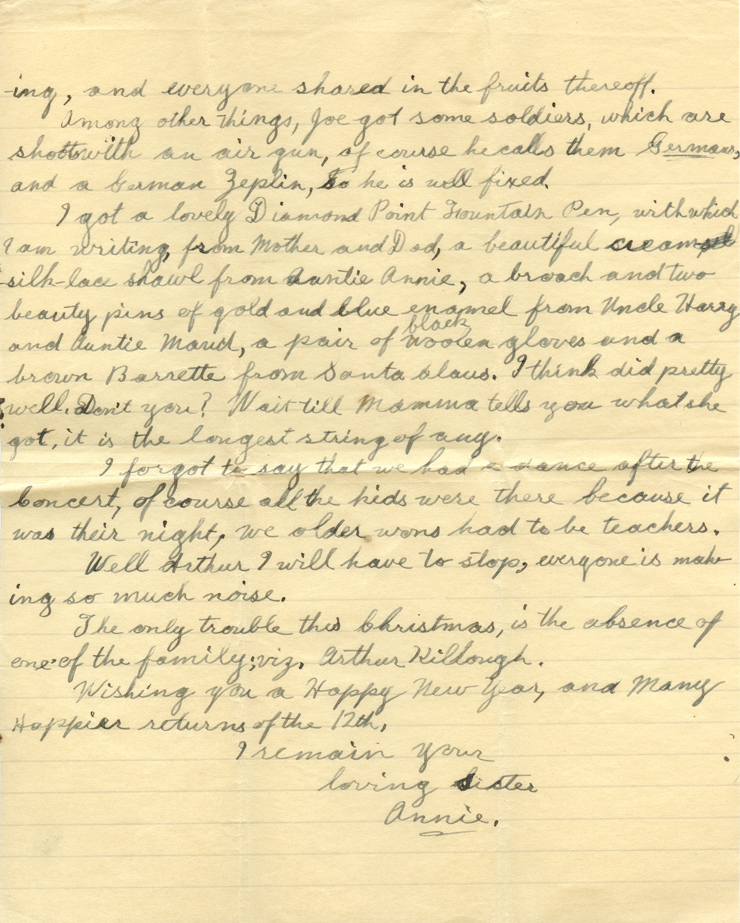 -ing, and everyone shared in the fruits thereoff.
Among other things, Joe got some soldiers, which are
shot with an air gun, of course he calls them Germans,
and a German Zeplin, So he is well fixed.
I got a lovely Diamond Point Fountain Pen, with which
I am writing, from Mother and Dad, a beautiful cream
silk-lace shawl from Auntie Annie, a broach and two
beauty pins of gold and blue enamel from Uncle Harry
and Auntie Maud, a pair of black woolen gloves and a
brown Barrette from Santa Claus. I think did pretty
well. Don't you? Wait till Mamma tells you what she
got, it is the longest string of any.
I forgot to say that we had a dance after the
Concert, of course all the kids were there because it
was their night, we older wons had to be teachers.
Well Arthur I will have to stop, everyone is mak-
ing so much noise.
The only trouble this Christmas, is the absence of
one of the family; viz, Arthur Killough.
Wishing you a Happy New Year, and Many
Happier returns of the 12th,
I remain your
loving Sister
Annie.